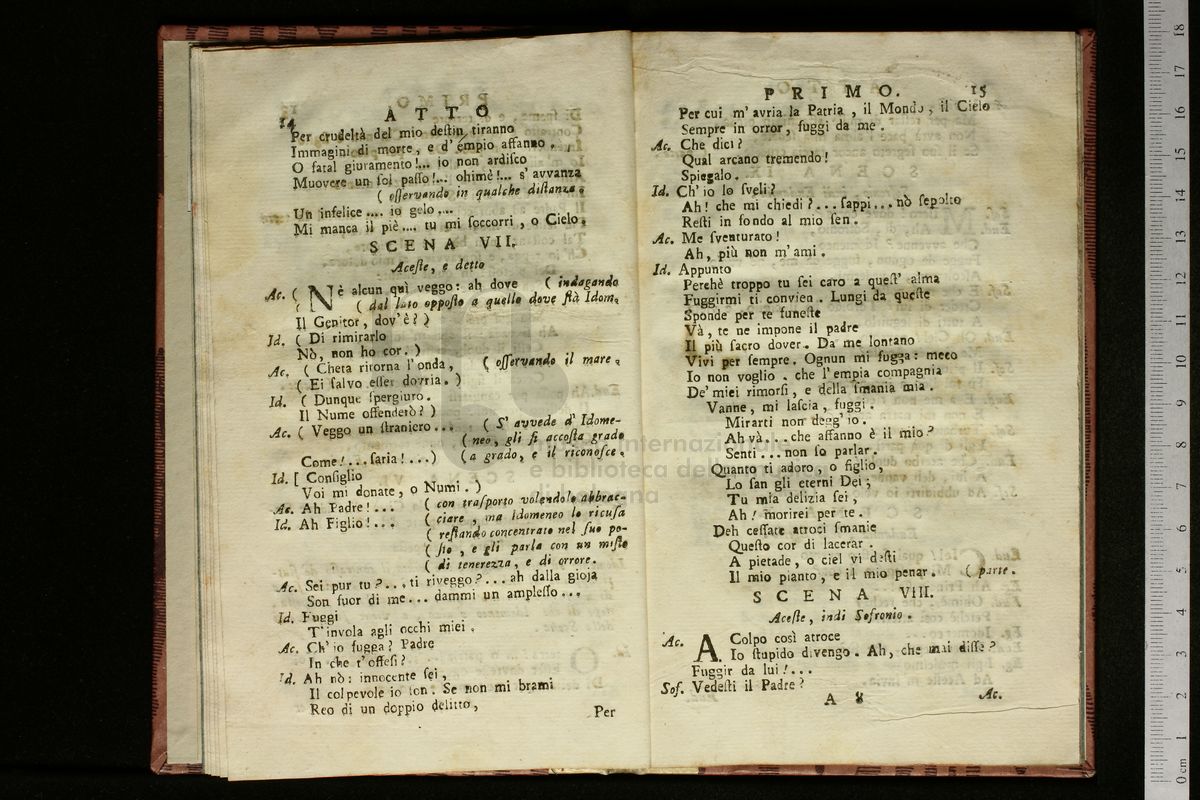 14
ATTO
Per crudeltà del mio deſtin tiranno
Immagini di morte, e d' empio affanno.
O fatal giuramento!... io non ardiſco
Muovere un ſol paſſo!... ohimè!... s' avvanza
( oſſervando in qualche diſtanza.
Un infelice .... io gelo ....
Mi manca il piè .... tu mi ſoccorri, o Cielo.
SCENA VII.
Aceſte, e detto
Ac. ( Nè alcun quì veggo: ah dove ( indagando
( dal lato oppoſto a quello dove ſtà Idom.
Il Genitor, dov'è? )
Id. ( Di rimirarlo
Nò, non ho cor. )
Ac. ( Cheta ritorna l'onda, ( oſſervando il mare.
( Ei ſalvo eſſer dovria. )
Id. ( Dunque ſpergiuro.
Il Nume offenderò? )
Ac. ( Veggo un ſtraniero... ( S' avvede d' Idome-
( neo, gli ſi accoſta grado
Come!...ſaria!...) ( a grado, e il riconoſce.
Id. [ Conſiglio
Voi mi donate, o Numi. )
Ac. Ah Padre!... ( con traſporto volendolo abbrac-
Id. Ah Figlio!... ( ciare, ma Idomeneo lo ricuſa
( reſtando concentrato nel ſuo po-
( ſto, e gli parla con un miſto
( di tenerezza, e di orrore.
Ac. Sei pur tu?...ti riveggo?...ah dalla gioja
Son fuor di me... dammi un ampleſſo...
Id. Fuggi
T'invola agli occhi miei.
Ac. Ch' io fugga? Padre
In che t'offeſi?
Id. Ah nò: innocente ſei,
Il colpevole io ſon. Se non mi brami
Reo di un doppio delitto,
Per
PRIMO. 15
Per cui m' avria la Patria, il Mondo, il Cielo
Sempre in orror, fuggi da me.
Ac. Che dici?
Qual arcano tremendo!
Spiegalo.
Id. Ch' io lo ſveli?
Ah! che mi chiedi?...ſappi...nò ſepolto
Reſti in fondo al mio ſen.
Ac. Me ſventurato!
Ah, più non m'ami.
Id. Appunto
Perchè troppo tu ſei caro a queſt' alma
Fuggirmi ti convien. Lungi da queſte
Sponde per te funeſte
Và, te ne impone il padre
Il più ſacro dover. Da me lontano
Vivi per ſempre. Ognun mi fugga: meco
Io non voglio. che l'empia compagnia
De' miei rimorſi, e della ſmania mia.
Vanne, mi laſcia, fuggi.
Mirarti non degg' io.
Ah và...che affanno è il mio?
Senti...non ſo parlar.
Quanto ti adoro, o figlio,
Lo ſan gli eterni Dei;
Tu mia delizia ſei,
Ah! morirei per te.
Deh ceſſate atroci ſmanie
Queſto cor di lacerar.
A pietade, o ciel vi deſti
Il mio pianto, e il mio penar. ( parte.
SCENA VIII.
Aceſte, indi Sofronio.
Ac. A Colpo così atroce
Io ſtupido divengo. Ah, che mai diſſe?
Fuggir da lui!...
Sof. Vedeſti il Padre?
A 8 Ac.